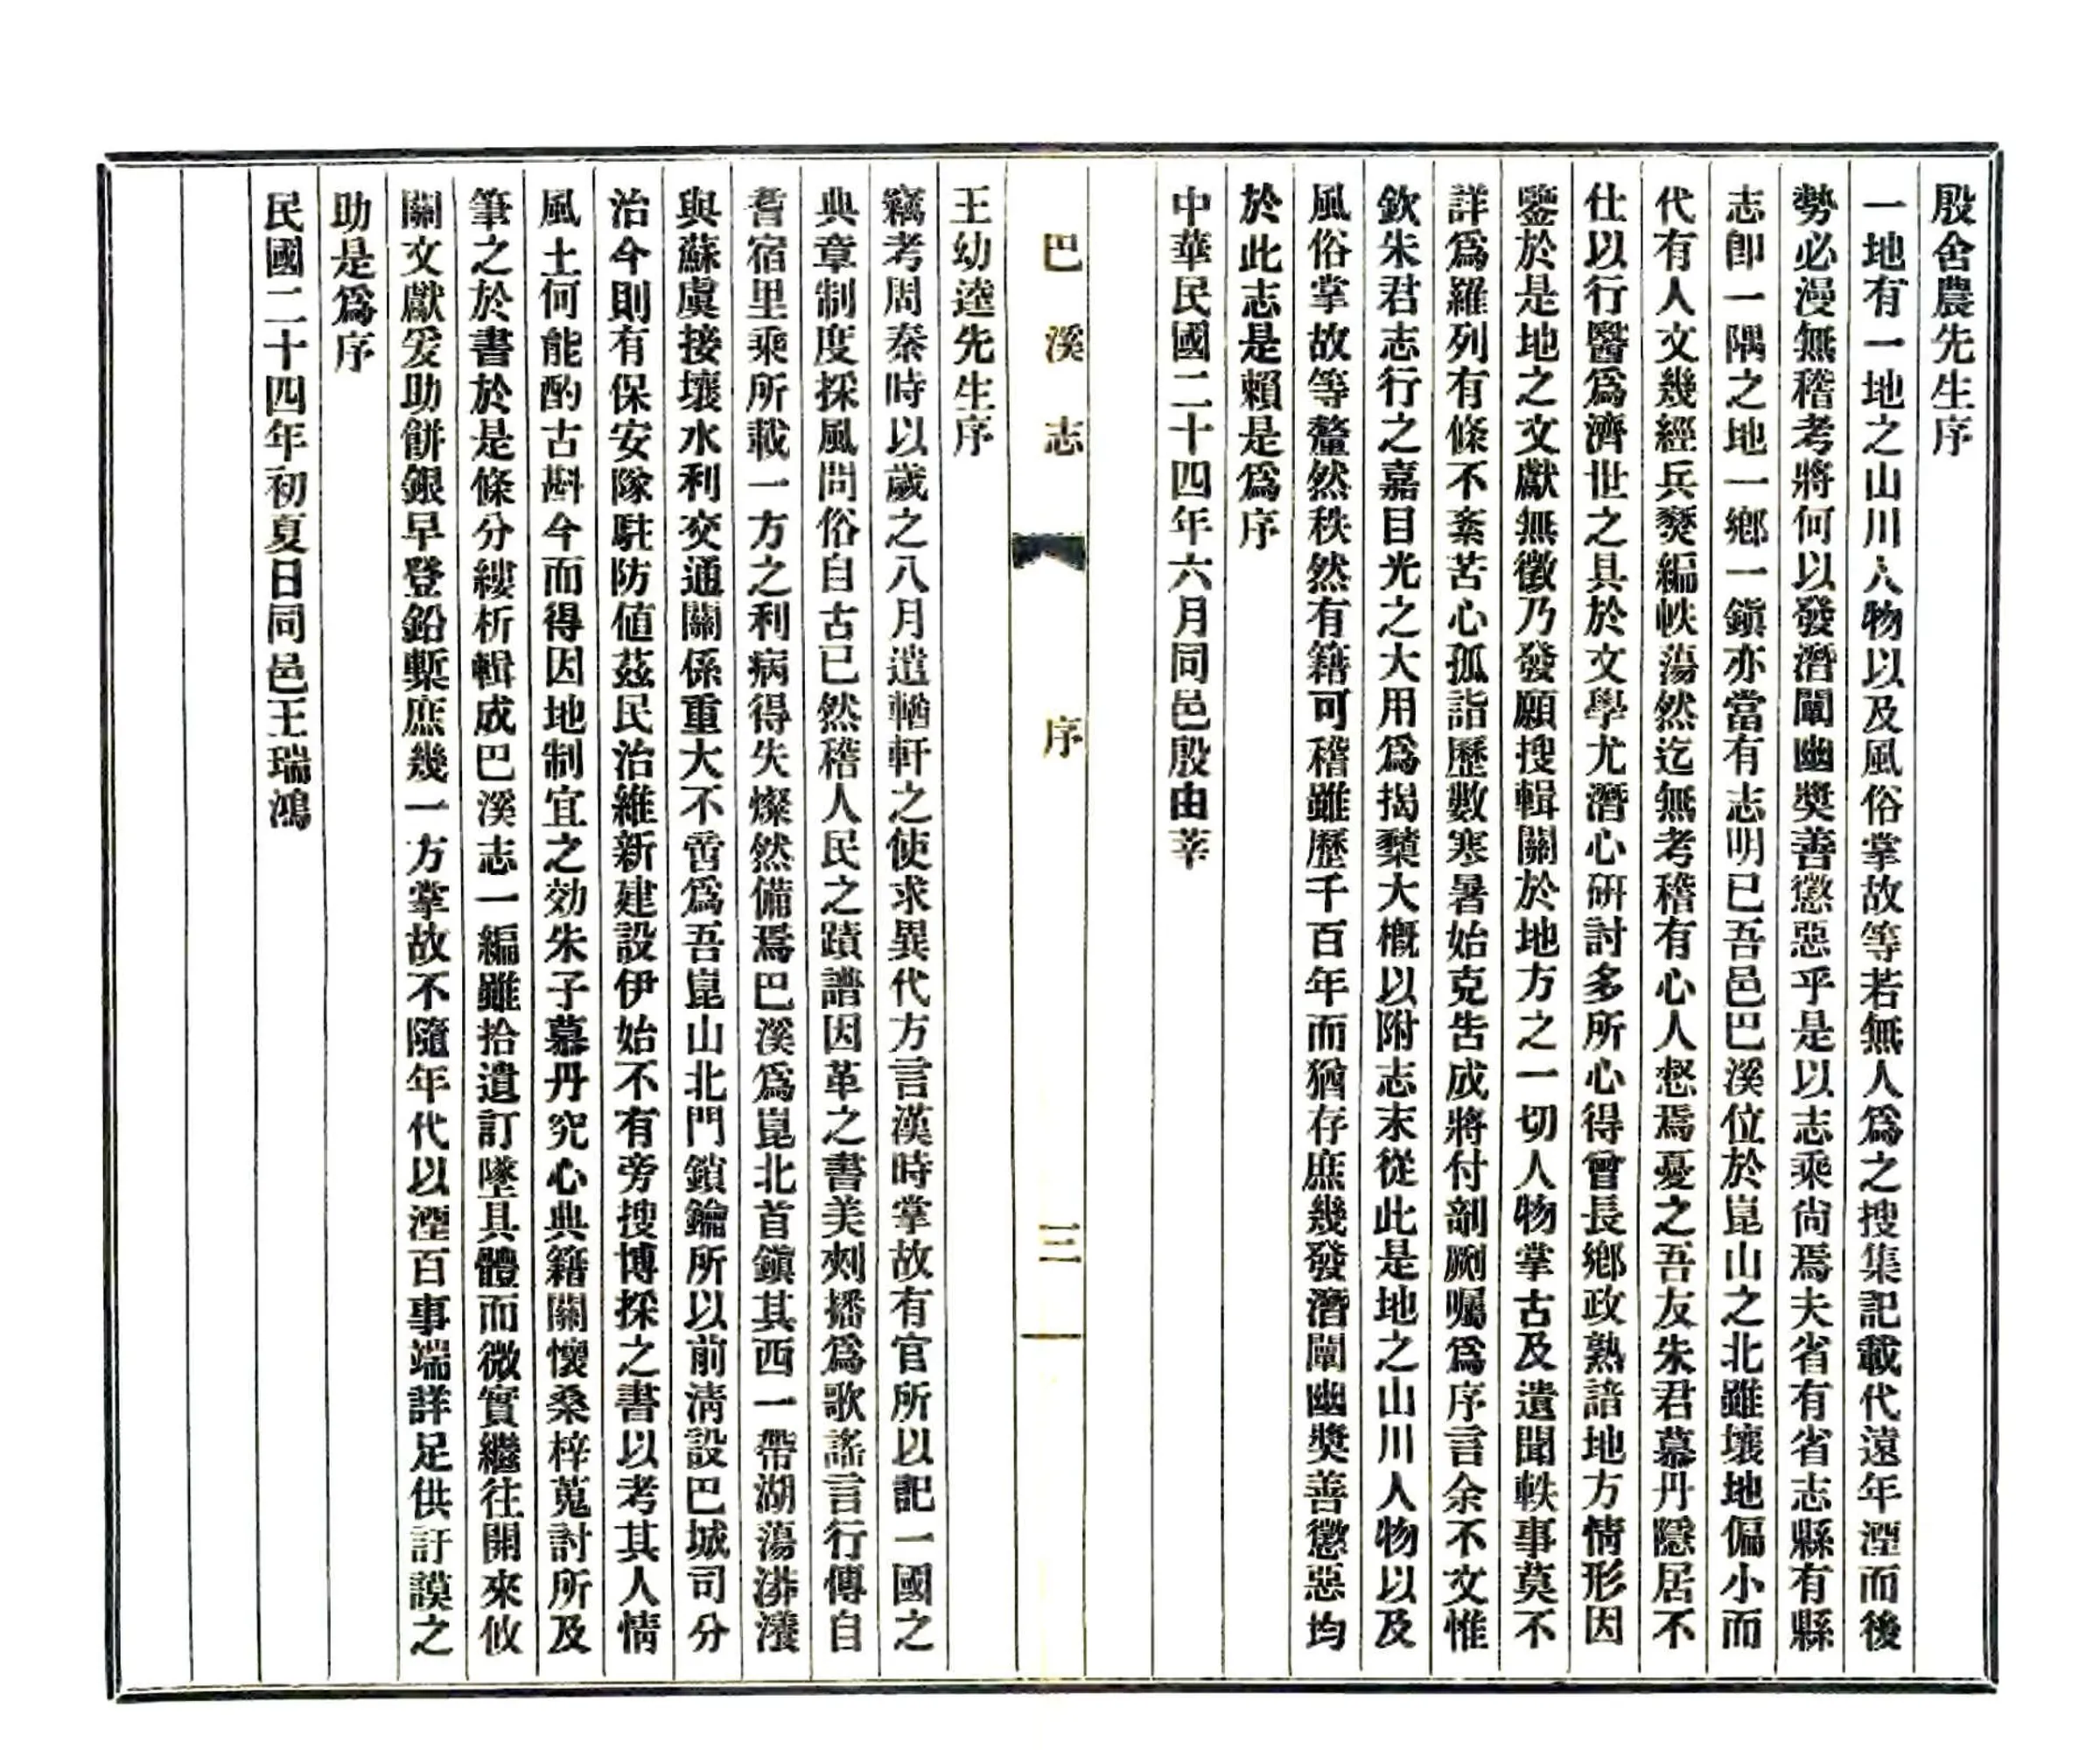 殷舍農先生序
一地有一地之山川人物以及風俗掌故等若無人爲之搜集記載代遠年湮而後
勢必漫無稽考將何以發潛闡幽奬善懲惡乎是以志乘尙焉夫省有省志縣有縣
志卽一隅之地一鄉一鎭亦當有志明已吾邑巴溪位於崑山之北雖壤地偏小而
代有人文幾經兵燹編帙蕩然迄無考稽有心人惄焉憂之吾友朱君慕丹隱居不
仕以行醫爲濟世之具於文學尤潛心硏討多所心得曾長鄉政熟諳地方情形因
鑒於是地之文獻無徵乃發願搜輯關於地方之一切人物掌古及遺聞軼事莫不
詳爲羅列有條不紊苦心孤詣歷數寒暑始克吿成將付剞劂囑爲序言余不文惟
欽朱君志行之嘉目光之大用爲揭櫫大概以附志末從此是地之山川人物以及
風俗掌故等釐然秩然有籍可稽雖歷千百年而猶存庶幾發潛闡幽奬善懲惡均
於此志是賴是爲序
中華民國二十四年六月同邑殷由莘
巴溪志 序 三
王幼逵先生序
竊考周秦時以歲之八月遣輶軒之使求異代方言漢時掌故有官所以記一國之
典章制度採風問俗自古已然稽人民之蹟譜因革之書美刺播爲歌謠言行傳自
耆宿里乘所載一方之利病得失燦然備焉巴溪爲崑北首鎭其西一帶湖蕩漭瀁
與蘇虞接壤水利交通關係重大不啻爲吾崑山北門鎖鑰所以前淸設巴城司分
治今則有保安隊駐防値茲民治維新建設伊始不有旁搜博採之書以考其人情
風土何能酌古斟今而得因地制宜之効朱子慕丹究心典籍關懷桑梓蒐討所及
筆之於書於是條分縷析輯成巴溪志一編雖拾遺訂墜具體而微實繼往開來攸
關文獻爰助餠銀早登鉛槧庶幾一方掌故不隨年代以湮百事端詳足供訏謨之
助是爲序
民國二十四年初夏日同邑王瑞鴻